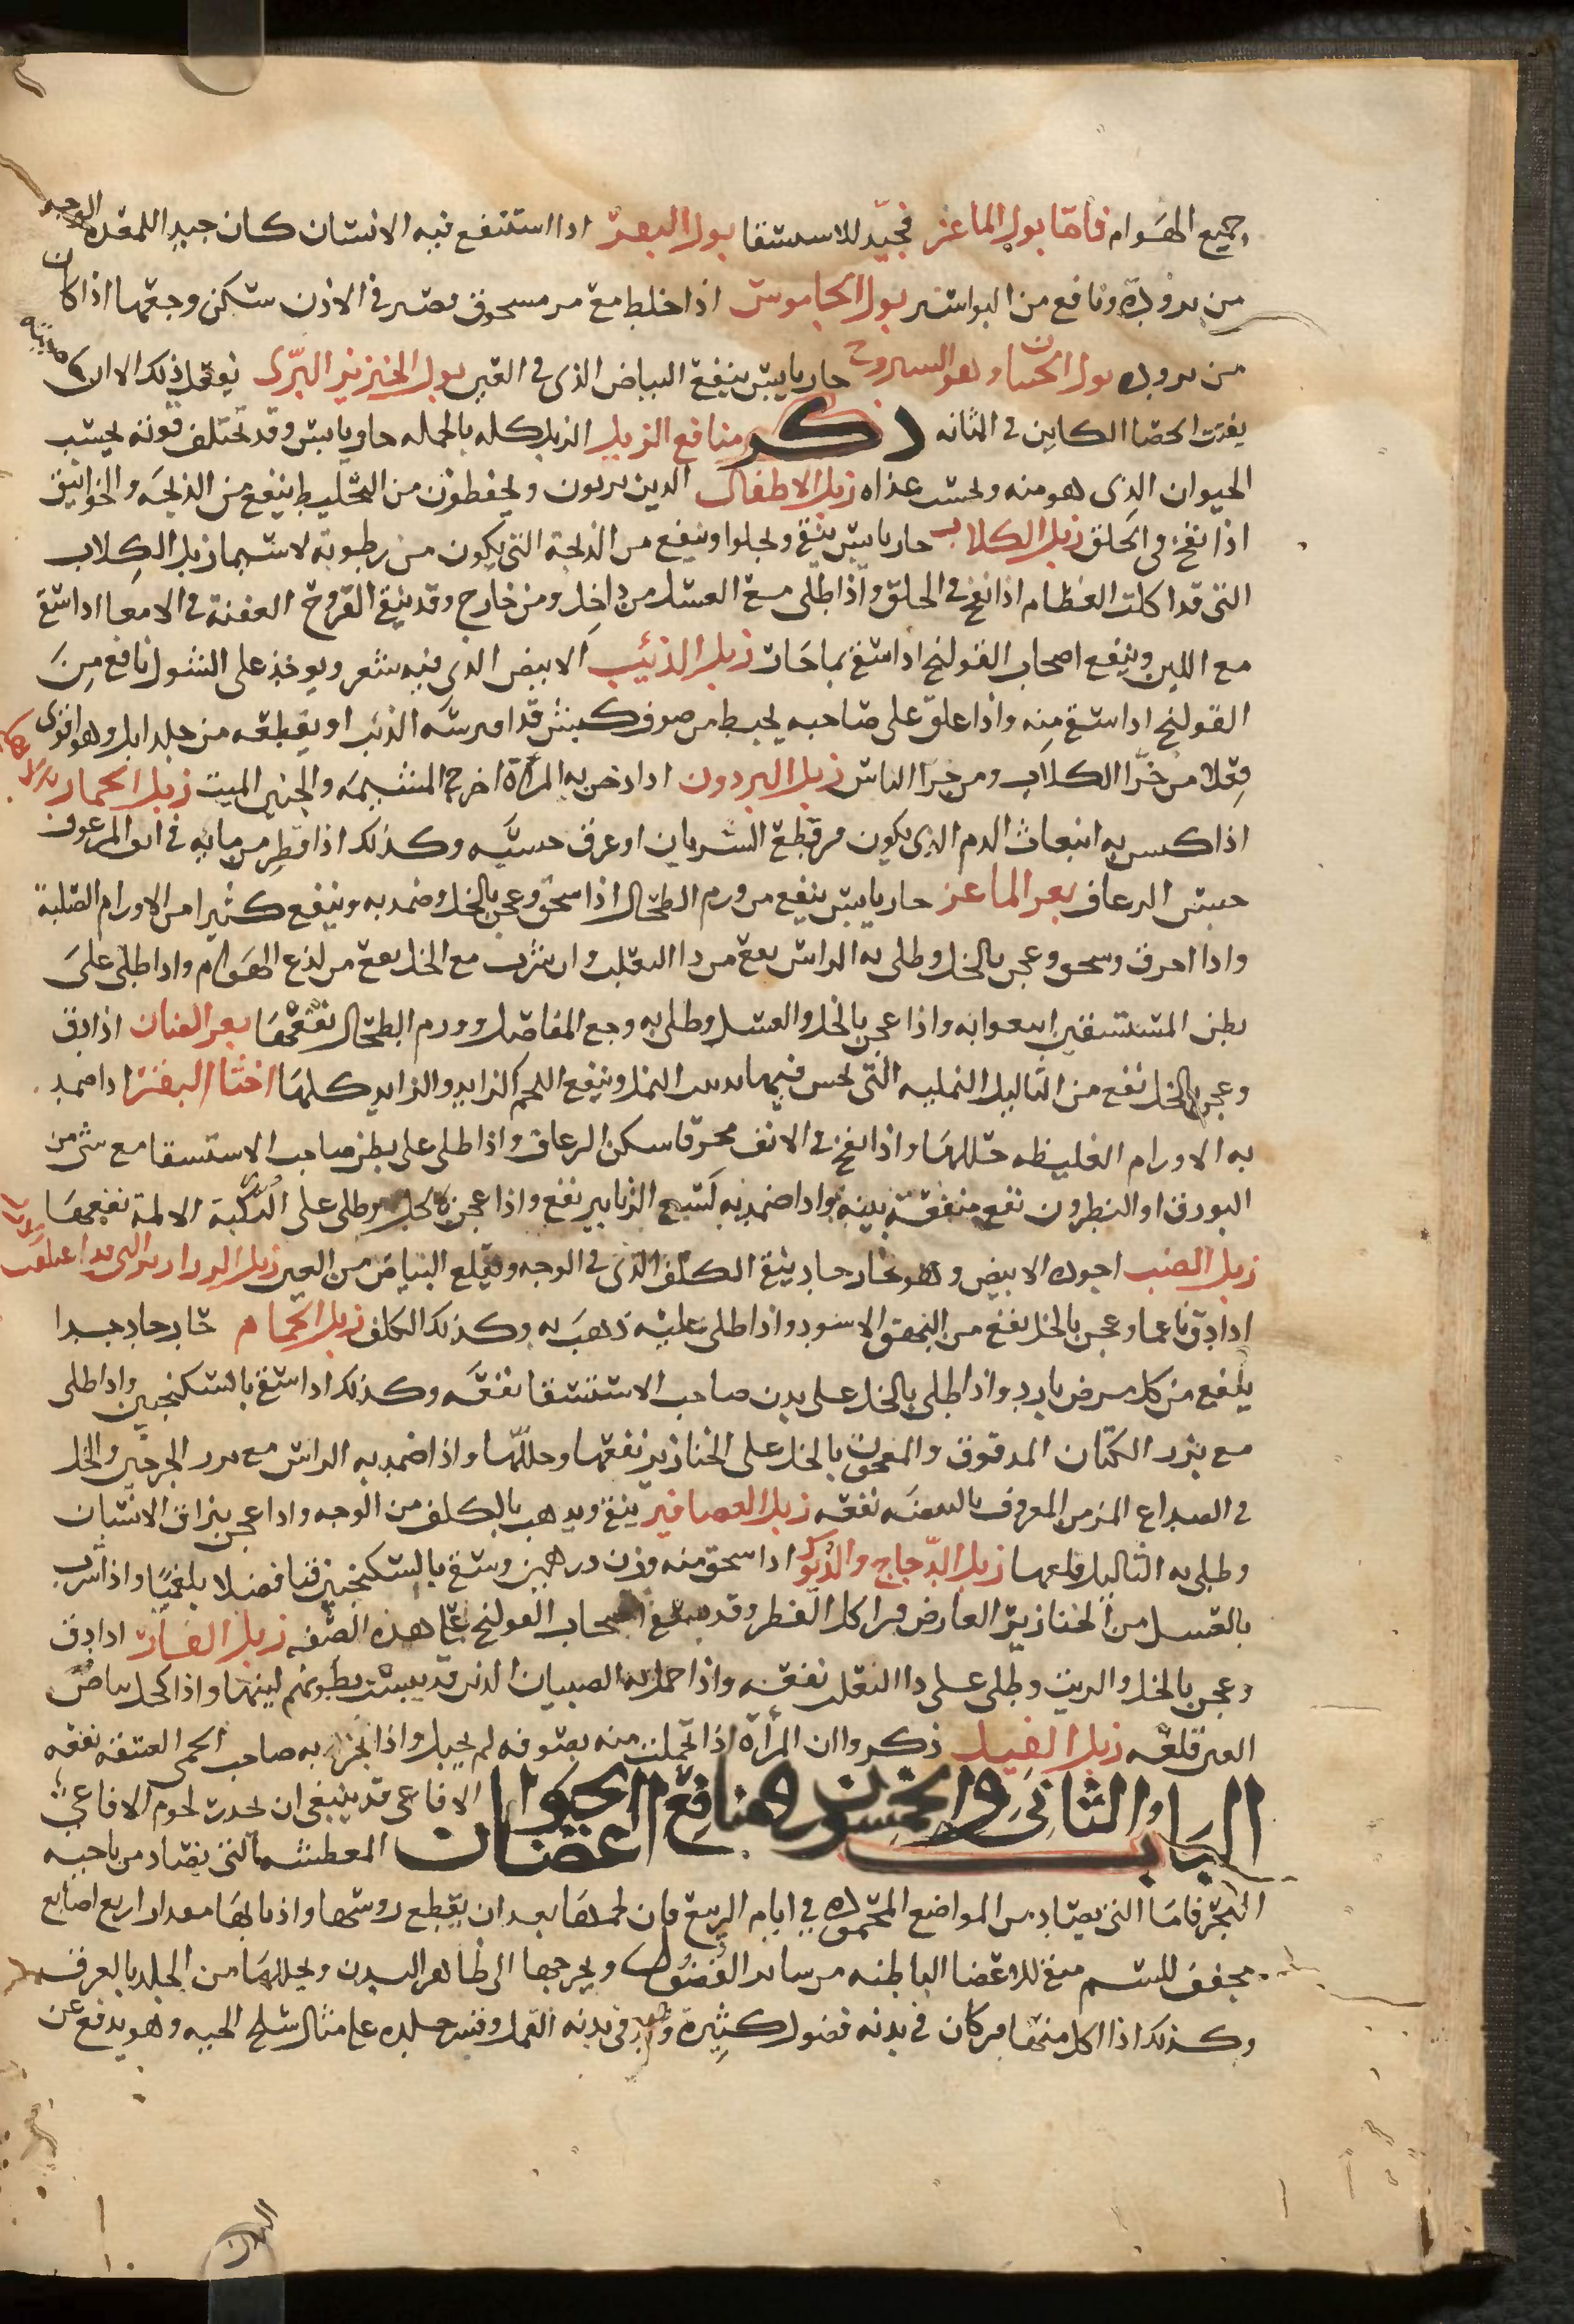 جميع الهوام فاما بول الماعز فجيد للاستسقا بول البقر اذا استنقع فيه الانسان كان جيدا للمقعدة الوجعه
من برودة ونافع من البواسير بول الجاموس اذا خلط مع مر مسحوق وقطر في الاذن سكن وجعها اذا كان
من برودة بول حار يابس ينفع البياض الذي في العين بول الخنزير البري يفعل ذلك الا ان
يفتت الحصا الكاين في المثانه ذكر منافع الزبل الزبل كله بالجمله حار يابس وقد تختلف قوته بحسب
الحيوان الذي هو منه وبحسب غذاه زبل الاطفال الذين يربون ويحفظون من التخليط ينفع من الذبحه والخوانيق
اذا نفخ في الحلق زبل الكلاب حار يابس ينقي ويجلوا وينفع من الذبحة التي يكون من رطوبة لا سيما زبل الكلاب
التي قد اكلت العظام اذا نفخ في الحلق واذا طلي مع العسل من داخل ومن خارج وقد ينفع القروح العفنة في الامعا اذا سقي
مع اللبن وينفع اصحاب القولنج اذا سقي بما حار زبل الذئيب الابيض الذي فيه شعر ويوخذ على الشوك نافع من
القولنج اذا سقي منه واذا علق على صاحبه بخيط من صوف كبش قد افترسه الذئب او بقطعه من جلد ايل وهو اقوى
فعلا من خرا الكلاب ومن خرا الناس زبل البردون اذا دخن به المرأة اخرج المشيمه والجنين الميت زبل الحمار
اذا كبس به انبعاث الدم الذي يكون من قطع الشريان او عرق حبسه وكذلك اذا قطر من مايه في انف المرعوف
حبس الرعاف بعر الماعز حار يابس ينفع من ورم الطحال اذا سحق وعجن بالخل وضمد به وينفع كثيرا من الاورام الصلبة
واذا احرق وسحق وعجن بالخل وطلي به الراس نفع من دا الثعلب وان شرب مع الخل نفع من لذع الهوام واذا طلي على
بطن المستسقين انتفعوا به واذا عجن بالخل والعسل وطلي به وجع المفاصل وورم الطحال نفعهما بعر الضان اذا دق
وعجن بالخل نفع من الثاليل النمليه التي يحس فيها بدبيب النمل وينفع اللحم الزايد والزايد كلها اخثا البقر اذا ضمد
به الاورام الغليظه حللها واذا نفخ في الانف محرقا سكن الرعاف واذا طلي على بطن صاحب الاستسقا مع شي من
البورق او النطرون نفع منفعة بينة واذا ضمد به لسع الزنابير نفع واذا عجن بالخل وطلي على الركبة الالمة نفعها
زبل الضب اجوده الابيض وهو حار حاد ينقي الكلف الذي في الوجه ويقلع البياض من العين زبل
اذا دق ناعما وعجن بالخل نفع من البهق الاسود واذا طلي عليه ذهب به وكذلك الكلف زبل الحمام حار حاد جدا
ينفع من كل مرض بارد واذا طلي بالخل على بدن صاحب الاستسقا نفعه وكذلك اذا سقي بالسكنجبين واذا طلي
مع بزر الكتان المدقوق والمعجون بالخل على الخنازير نفعها وحللها واذا ضمد به الراس مع بزر الجرجير والخل
في الصداع المزمن المعروف بالبيضه نفعه زبل العصافير ينقي ويذهب بالكلف من الوجه واذا عجن ببزاق الانسان
وطلي به الثاليل قلعها زبل الدجاج والديوك اذا سحق منه وزن درهمين وسقي بالسكنجبين قيا فضلا بلغميا واذا شرب
بالعسل من الخنازير العارض من اكل الفطر وقد يسقى اصحاب القولنج على هذه الصفه زبل الفار اذا دق
وعجن بالخل والزيت وطلي على دا الثعلب نفعه واذا حمل به الصبيان الذين قد يبست بطونهم لينها واذا كحل بياض
العين قلعه زبل الفيل ذكروا ان المرأة اذا تحملت منه بصوفه لم تحبل واذا بخر به صاحب الحمى العتيقه نفعه
الباب الثاني والخمسون في منافع اعضا الحيوان الافاعي قد ينبغي ان تحذر لحوم الافاعي
المعطشه التي تصاد من ناحيه
البحر فاما التي تصاد من المواضع المحموده في ايام الربيع فان لحمها بعد ان يقطع روسها واذنابها مقدار اربع اصابع
مجفف للسم منقي للاعضا الباطنه من ساير الفضول ويخرجها الى ظاهر البدن ويحللها من الجلد بالعرق
وكذلك اذا اكل منها من كان في بدنه فضول كثيرة ولد في بدنه القمل وقشر جلده على مثال سلخ الحيه وهو يدفع عن